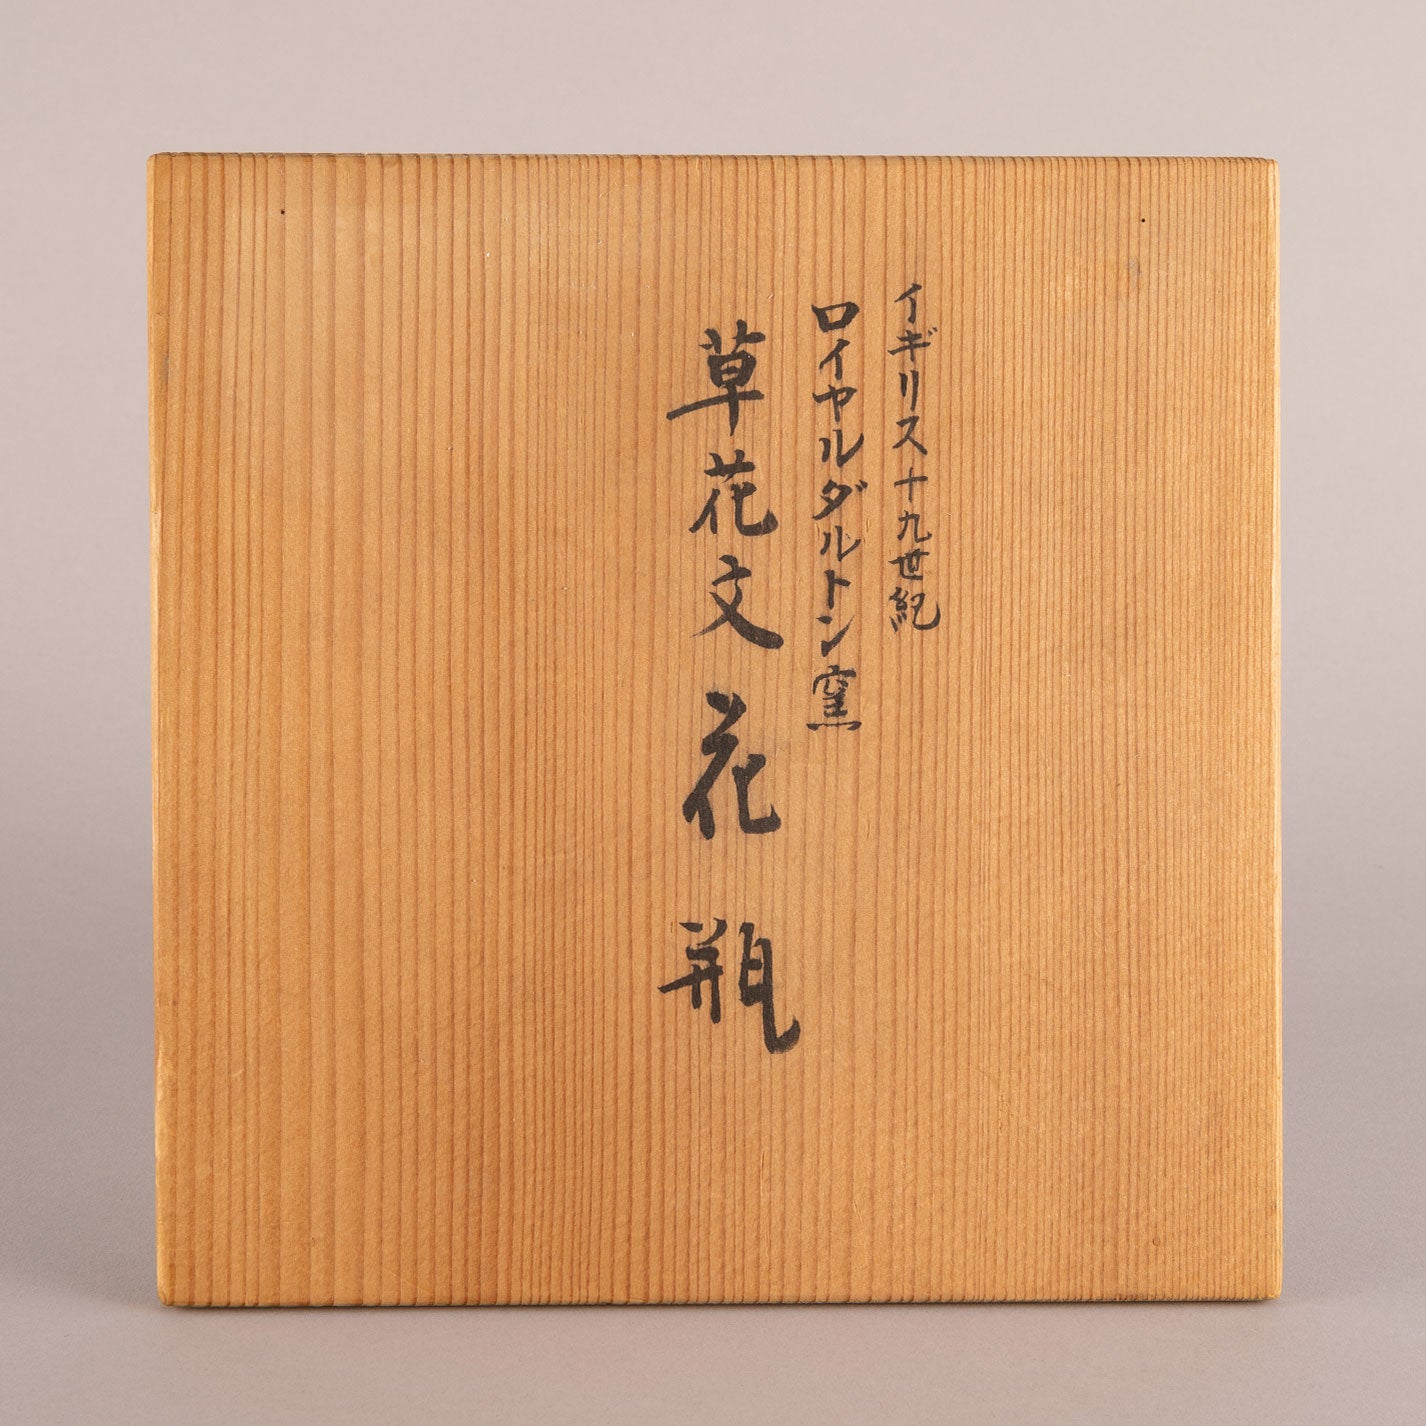 イギリス十九世紀
ロイヤルダルトン窯
草花文花瓶